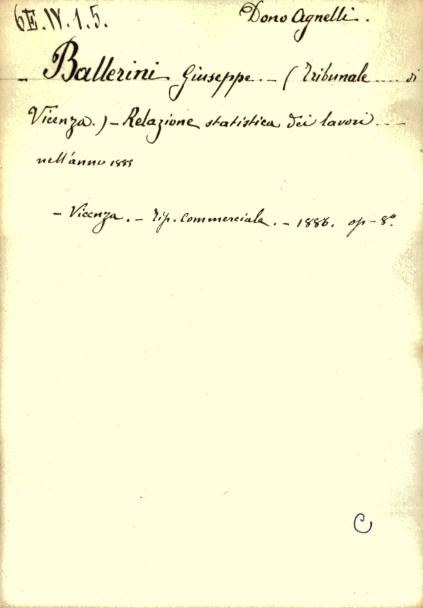 6E.IV.1.5.
Dono Agnelli.
– Ballerini Giuseppe. – (Tribunale .... di
Vicenza.) – Relazione statistica dei lavori ....
nell'anno 1885
– Vicenza. – Tip. Commerciale. – 1886. op – 8º.
C